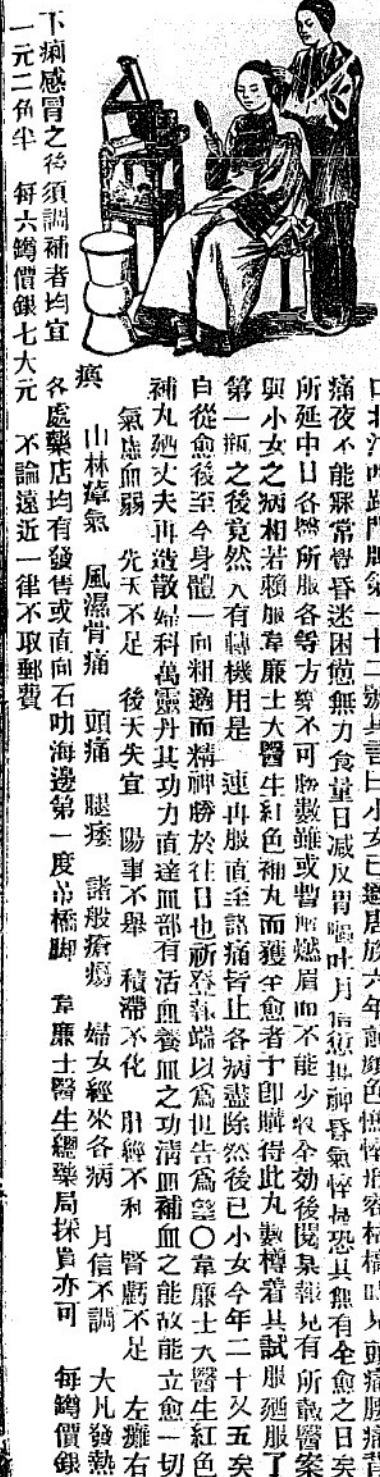 口北江西路門牌第一十二號其言曰小女已適唐族六年前顏色憔悴形容枯槁時見頭痛腰痛背
痛夜不能寐常覺昏迷困憊無力食量日減反胃嘔吐月信愆期神昏氣悴恐其無有全愈之日矣
所延中日各醫所服各等方藥不可勝數雖或暫解燃眉而不能少收全効後閱某報見有所載醫案
與小女之病相若賴服韋廉士大醫生紅色補丸而獲全愈者于即購得此丸數樽着其試服廼服了
第一瓶之後竟然大有轉機用是一連再服直至諸痛皆止各病盡除然後已小女今年二十又五矣
自從愈後至今身體一向粗適而精神勝於往日也祈登報端以爲世告爲望〇韋廉士大醫生紅色
補丸廼丈夫再造散婦科萬靈丹其功力直達血部有活血養血之功淸血補血之能故能立愈一切
氣虛血弱 先天不足 後天失宜 陽事不舉 積滯不化 肝經不利 腎虧不足 左癱右
瘓 山林瘴氣 風濕骨痛 頭痛 腿痿 諸般瘡瘍 婦女經來各病 月信不調 大凡發熱
下痢感冒之後須調補者均宜 各處藥店均有發售或直向石叻海邊第一度吊橋脚 韋廉士醫生總藥局採買亦可 每罇價銀
一元二角半 每六罇價銀七大元 不論遠近一律不取郵費